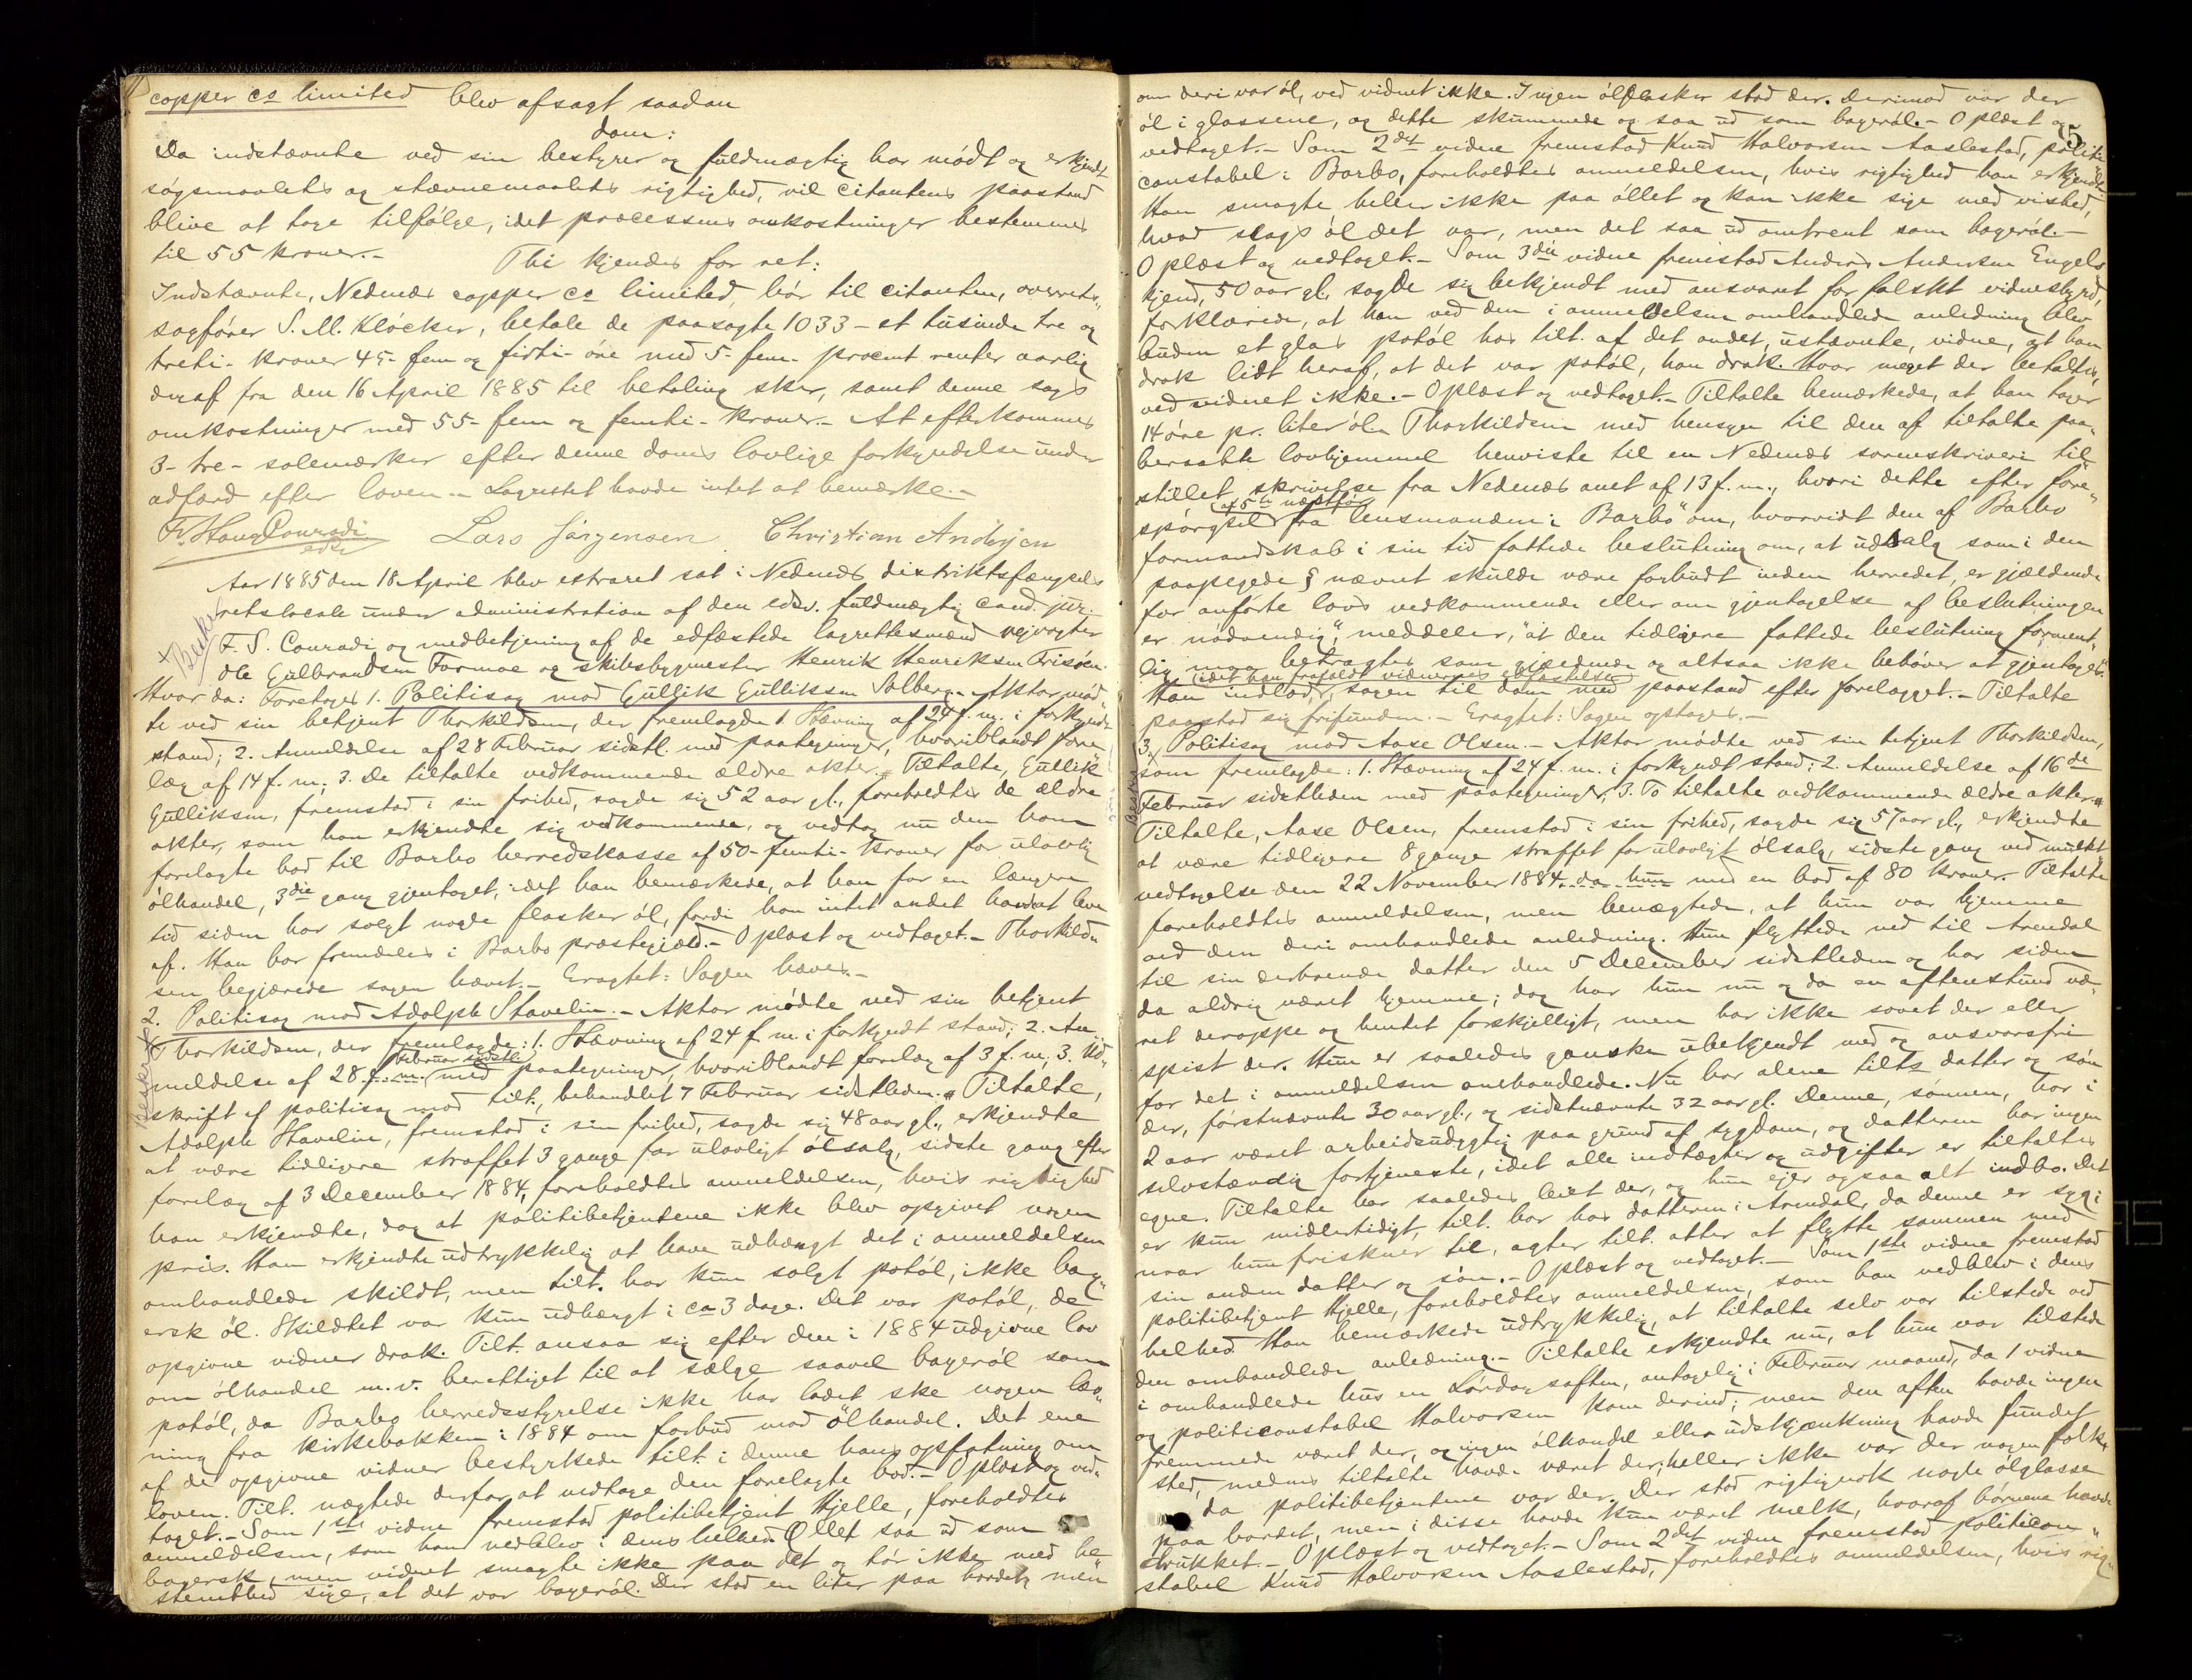 copper co limited blev afsagt saadan
dom:
Da indstævnte ved sin bestyrer og fuldmægtig har mødt og erkjendt
søgsmaalets og stævnemaalets rigtighed, vil citantens paastand
blive at tage tilfølge, idet processens omkostninger bestemmes
til 55 kroner.-
Thi kjendes for ret:
Indstævnte, Nedenæs copper co limited, bør til citanten, overrets-
sagfører S. M. Kløcker, betale de paasagte 1033 - et tusinde tre og
treti - kroner 45 - fem og firti - øre med 5 - fem - procent renter aarlig
deraf fra den 16 April 1885 til betaling sker, samt denne sags
omkostninger med 55 - fem og femti - kroner.- At efterkommes
3 - tre - solemærker efter denne doms lovlige forkyndelse under
adfærd efter loven.- Lagrettet havde intet at bemærke.-
Fr. Hans Conradi Lars Jørgensen Christian Andersen
edsv
Aar 1885 den 18 April blev extraret sat i Nedenæs distriktsfængsels
retslocale under administration af den edsv. fuldmægtig cand. jur.
F. S. Conradi og medbetjening af de edfæstede lagrettesmænd vejvogter
Ole Gulbrandsen Formoe og skibsbygmester Henrik Henriksen Frisøen.
Hvor da: Foretoges 1. Politisag mod Gullik Gulliksen Solberg.- Aktor mød-
te ved sin betjent Thorkildsen, der fremlagde 1. Stævning af 24 f. m. i forkyndt
stand; 2. Anmeldelse af 28 Februar sidstl. med paategninger, hvoriblandt fore-
læg af 14 f. m; 3. De tiltalte vedkommende ældre akter. # Tiltalte, Gullik
Gulliksen, fremstod i sin frihed, sagde sig 52 aar gl., foreholdtes de ældre
akter, som han erkjendte sig vedkommende, og vedtog nu den ham
forelagte bod til Barbo herredskasse af 50 - femti - kroner for ulovlig
ølhandel, 3die gang gjentaget, idet han bemærkede, at han for en længere
tid siden har solgt nogle flasker øl, fordi han intet andet havde at leve
af. Han bor fremdeles i Barbo præstegjæld.- Oplæst og vedtaget.- Thorkild-
sen begjærede sagen hævet.- Eragtet: Sagen hæves.-
2. Politisag mod Adolph Stavelin.- Aktor mødte ved sin betjent
Thorkildsen, der fremlagde: 1. Stævning af 24 f. m. i forkyndt stand; 2. An-
Februar sidstl.
meldelse af 28 f. m. med paategninger, hvoriblandt forelæg af 3 f. m; 3. Ud-
skrift af politisag mod tilt., behandlet 7 Februar sidstleden. # Tiltalte,
Adolph Stavelin, fremstod i sin frihed, sagde sig 48 aar gl., erkjendte
at være tidligere straffet 3 gange for ulovligt ølsalg, sidste gang efter
forelæg af 3 December 1884, foreholdtes anmeldelsen, hvis rigtighed
han erkjendte, dog at politibetjentene ikke blev opgivet nogen
pris. Han erkjendte udtrykkelig at have udhængt det i anmeldelsen
omhandlede skildt, men tilt. har kun solgt potøl, ikke bay-
ersk øl. Skildtet var kun udhængt i ca 3 dage. Det var potøl, de
opgivne vidner drak. Tilt. ansaa sig efter den i 1884 udgivne lov
om ølhandel m. v. berettiget til at sælge saavel bayerøl som
potøl, da Barbo herredsstyrelse ikke har ladet ske nogen læs-
ning fra kirkebakken i 1884 om forbud mod ølhandel. Det ene
af de opgivne vidner bestyrkede tilt. i denne hans opfatning om
loven. Tilt. nægtede derfor at vedtage den forelagte bod.- Oplæst og ved-
taget.- Som 1ste vidne fremstod politibetjent Hjelle, foreholdtes
anmeldelsen, som han vedblev i dens helhed. Øllet saa ud som
bayersk, men vidnet smagte ikke paa det og tør ikke med be-
stemthed sige, at det var bayerøl. Der stod en liter paa bordet, men
om deri var øl, ved vidnet ikke. Ingen ølflasker stod der. Derimod var der
øl i glassene, og dette skummede og saa ud som bayerøl.- Oplæst og
5
vedtaget.- Som 2det vidne fremstod Knud Halvorsen Aaslestad, politi-
constabel i Barbo, foreholdtes anmeldelsen, hvis rigtighed han erkjendte.
Han smagte heller ikke paa øllet og kan ikke sige med vished,
hvad slags øl det var, men det saa ud omtrent som bayerøl.-
Oplæst og vedtaget.- Som 3die vidne fremstod Anders Andersen Engels-
kjend, 50 aar gl., sagde sig bekjendt med ansvaret for falskt vidnesbyrd,
forklarede, at han ved den i anmeldelsen omhandlede anledning blev
buden et glas potøl hos tilt. af det andet, ustævnte, vidne, at han
drak lidt heraf, at det var potøl, han drak. Hvor meget der betaltes,
ved vidnet ikke.- Oplæst og vedtaget.- Tiltalte bemærkede, at han tager
14 øre pr. liter øl.- Thorkildsen med hensyn til den af tiltalte paa-
beraabte lovhjemmel henviste til en Nedenæs sorenskriveri til-
stillet skrivelse fra Nedenæs amt af 13 f. m., hvori dette efter fore-
af 5te næstfør
spørgsel fra lensmanden i Barbo "om, hvorvidt den af Barbo
formandskab i sin tid fattede beslutning om, at udsalg som i den
paapegede § nævnt skulde være forbudt inden herredet, er gjældende
for anførte lovs vedkommende eller om gjentagelse af beslutningen
er nødvendig", meddeler, "at den tidligere fattede beslutning forment-
lig maa betragtes som gjældende og altsaa ikke behøver at gjentages".
idet han frafaldt vidnernes edfæstelse
Han indlod, sagen til dom med paastand efter forelægget.- Tiltalte
paastod sig frifunden.- Eragtet: Sagen optages.-
3. Politisag mod Aase Olsen.- Aktor mødte ved sin betjent Thorkildsen,
som fremlagde: 1. Stævning af 24 f. m. i forkyndt stand; 2. Anmeldelse af 16de
Februar sidstleden med paategninger, 3. To tiltalte vedkommende ældre akter. #
Tiltalte, Aase Olsen, fremstod i sin frihed, sagde sig 57 aar gl., erkjendte
at være tidligere 8 gange straffet for ulovligt ølsalg, sidste gang ved mulkt-
vedtagelse den 22 November 1884, da hun med en bod af 80 kroner. Tiltalte
foreholdtes anmeldelsen, men benægtede, at hun var hjemme
ved den deri omhandlede anledning. Hun flyttede ned til Arendal
til sin derboende datter den 5 December sidstleden og har siden
da aldrig været hjemme; dog har hun nu og da en aftenstund væ-
ret deroppe og hentet forskjelligt, men har ikke sovet der eller
spist der. Hun er saaledes ganske ubekjendt med og ansvarsfri
for det i anmeldelsen omhandlede. Nu bor alene tilts datter og søn
der, førstnævnte 30 aar gl., og sidstnævnte 32 aar gl. Denne, sønnen, har i
2 aar været arbeidsudygtig paa grund af sygdom, og datteren har ingen
selvstændig fortjeneste, idet alle indtægter og udgifter er tiltaltes
egne. Tiltalte har saaledes leiet der, og hun ejer ogsaa alt indbo. Det
er kun midlertidigt, tilt. bor hos datteren i Arendal, da denne er syg;
naar hun friskner til, agter tilt. atter at flytte sammen med
sin anden datter og søn.- Oplæst og vedtaget.- Som 1ste vidne fremstod
politibetjent Hjelle, foreholdtes anmeldelsen, som han vedblev i dens
helhed. Han bemærkede udtrykkelig, at tiltalte selv var tilstede ved
den omhandlede anledning.- Tiltalte erkjendte nu, at hun var tilstede
i omhandlede hus en Lørdagsaften, antagelig i Februar maaned, da 1 vidne
og politiconstabel Halvorsen kom derind; men den aften havde ingen
fremmede været der, og ingen ølhandel eller udskjænkning havde fundet
sted, medens tiltalte havde været der; heller ikke var der nogen folk,
da politibetjentene var der. Der stod rigtignok nogle ølglasse
paa bordet, men i disse havde kun været melk, hvoraf børnene havde
drukket.- Oplæst og vedtaget.- Som 2det vidne fremstod politicon-
stabel Knud Halvorsen Aaslestad, foreholdtes anmeldelsen, hvis rig-